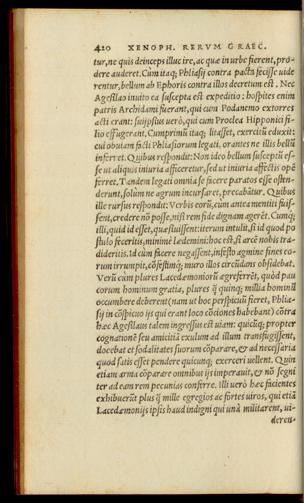 420 XENOPH. RERVM GRAEC.
tur, ne quis deinceps illuc ire, ac quæ in urbe fierent, pro-
dere auderet. Cùm itaq; Phliasij contra pacta fecisse uide
rentur, bellum ab Ephoris contra illos decretum est. Nec
Agesilao inuito ea suscepta est expeditio: hospites enim
patris Archidami fuerant, qui cum Podanemo extorres
acti erant: suiipsius uerò, qui cum Proclea Hipponici fi-
lio effugerant. Cumprimù itaq; litasset, exercitũ eduxit:
cui obuiam facti Phliasiorum legati, orantes ne illis bellũ
inferret. Quibus respondit: Non ideo bellum susceptũ es-
se ut aliquos iniuria afficeretur, sed ut iniuria affectis opẽ
ferret. Tandem legati omnia se facere paratos esse osten-
derunt, solùm ne agrum incursaret, precabãtur. Quibus
ille rursus respondit: Verbis eorũ, cùm antea mentiti fuis-
sent, credere nõ posse, nisi rem fide dignam agerẽt. Cumq;
illi, quid id esset, quæsiuissent: iterum intulit, si id quod po
stulo feceritis, minimè lædemini: hoc est, si arcẽ nobis tra-
dideritis. Id cùm facere negassent, infesto agmine fines eo-
rum irrumpit, cõfestimq; muro illos circũdans obsidebat.
Verù cùm plures Lacedæmoniorũ ægreferrẽt, quòd pau
corum hominum gratia, plures q̃ quinq; millia hominũ
occumbere deberent (nam ut hoc perspicuũ fieret, Phlia-
sij in cõspicuo ijs qui erant loco cõciones habebant) cõtra
hæc Agesilaus talem ingressus est uiam: quicũq; propter
cognationẽ seu amicitiã exulum ad illum transfugissent,
docebat et sodalitates suorum cõparare, & ad necessaria
quod satis esset pendere quicunq; exerceri uellent. Quin
etiam arma cõparare omnibus ijs imperauit, & nõ segni
ter ad eam rem pecunias conferre. Illi uerò hæc facientes
exhibuerũt plus q̃ mille egregios ac fortes uiros, qui etiã
Lacedæmonijs ipsis haud indigni qui unà militarent, ui-
deren-